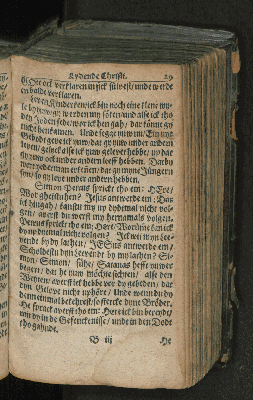 Lydende Christi. 29
Godt ock verklaren in sick sülvest / unde werde
en balde verklaren.
Leven Kinderken ick bin noch eine klene wy-
le by juw / gy werden my söken / und alse ick tho
den Jöden sede / wor ick hen gah / dar könne gy
nicht hen kamen. Unde segge juw nu / Ein nye
Gebodt geve ick juw / dat gy juw under andern
leven / gelyck alse ick juw gelevet hebbe / up dat
gy juw ock under andern leef hebben. Darby
wert yederman erkennen / dat gy myne Jüngern
syn / so gy leve under andern hebben.
Simon Petrus sprickt tho em: HEre /
Wor gheistu hen? Jesus antwerde em: Dar
ick hengah / kanstu my up dytmal nicht vol-
gen / averst du werst my hernamals volgen.
Petrus sprickt tho em: Here / Worüme kan ick
dy up dytmal nicht volgen? Ick wil myn Le-
vent by dy lathen / JESus antwerde em /
Scholdestu dyn Levent by my lathen? Si-
mon / Simon / süh / Satanas hefft juwer
begert / dat he juw möchte sichten / alse den
Weyten / averst ick hebbe vor dy gebeden / dat
dyn Gelove nicht uphöre / Unde wenn du dy
den enmal bekehrest / so stercke dyne Bröder.
He sprack averst tho em: Here ick bin bereyde /
mit dy in de Gefencknisse / unde in den Dodt
tho gahnde.
B iij He